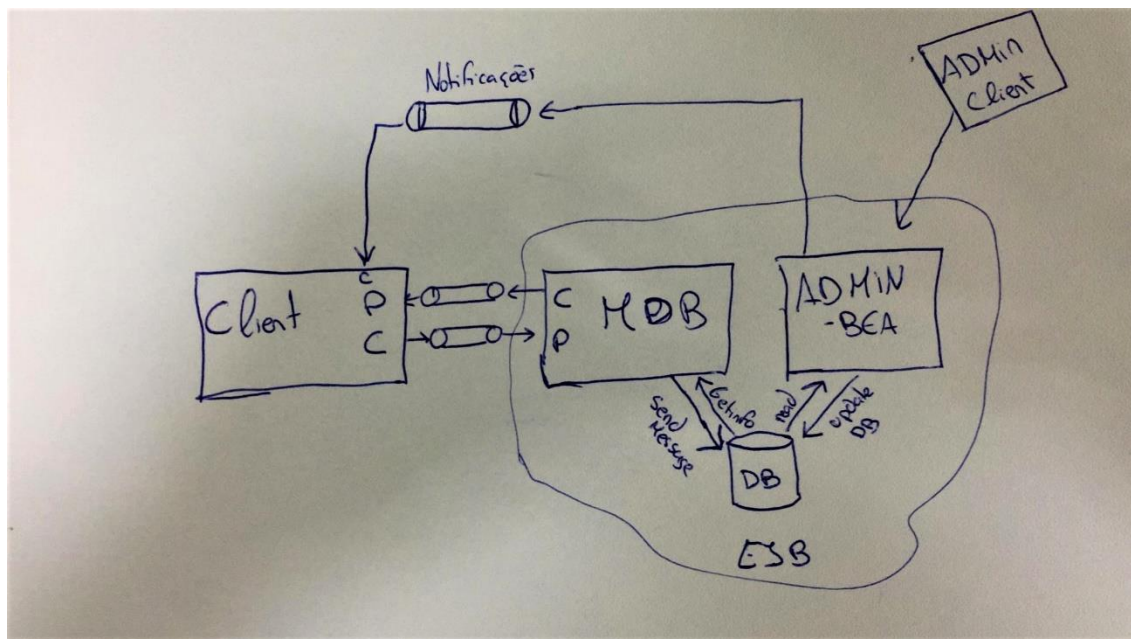 Notificações
ADMin
Client
Client
C
P
C
C
P
MDB
ADMiN
-BEA
Send
Message
Getinfo
read
update
DB
DB
EJB